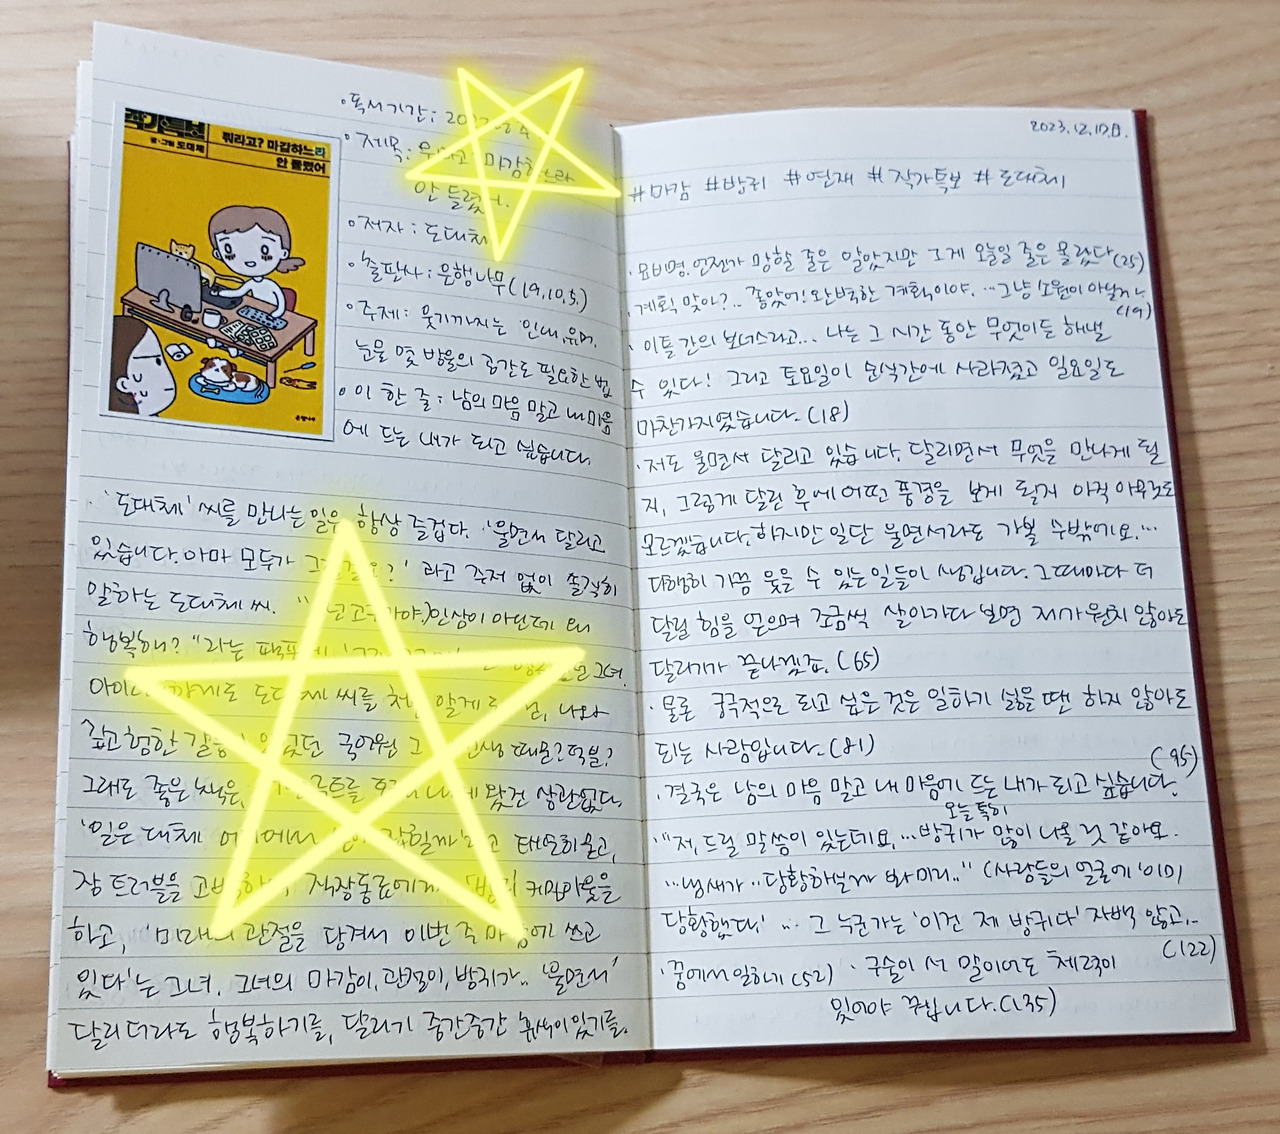 글·그림 도대체
뭐라고? 마감하느라
안 들렸어
은행나무
◦독서기간:
◦제목: 마감하느라
안 들렸어.
◦저자: 도대체
◦출판사: 은행나무(19.10.5.)
◦주제: 웃기까지는 인내, 유머,
눈물 몇 방울의 공간도 필요한 법
◦이 한 줄: 남의 마음 말고 내 마음
에 드는 내가 되고 싶습니다.
'도대체' 씨를 만나는 일은 항상 즐겁다. '울면서 달리고
있습니다. 아마 모두가 라고 주저 없이 솔직히
말하는 도대체 씨. 인상이 아닌데 왜
행복해?" 라는 그녀.
도대체 씨를 처음 알게 나와
깊고 험한 국어원 때문? 덕분?
그래도 좋은 책은, 왔건 상관없다.
'일은 대체 태연히 묻고,
장 트러블을 고백하며 직장동료에게 커밍아웃을
하고, '미래의 관절을 당겨서 이번 주 마감에 쓰고
있다'는 그녀. 그녀의 마감이, 관절이, 방귀가.. '울면서'
달리더라도 행복하기를, 달리기 중간중간 휴식이 있기를.
2023.12.17.日.
#마감 #방귀 #연재 #작가특보 #도대체
·묘비명. 언젠가 망할 줄은 알았지만 그게 오늘일 줄은 몰랐다(25)
·계획 맞아?.. 좋았어! 완벽한 계획이야. …그냥 소원이 아닐까
(19)
·이틀간의 보너스라고... 나는 그 시간 동안 무엇이든 해낼
수 있다! 그리고 토요일이 순식간에 사라졌고 일요일도
마찬가지였습니다. (18)
·저도 울면서 달리고 있습니다. 달리면서 무엇을 만나게 될
지, 그렇게 달린 후에 어떤 풍경을 보게 될지 아직 아무것도
모르겠습니다. 하지만 일단 울면서라도 가볼 수밖에요. …
다행히 가끔 웃을 수 있는 일들이 생깁니다. 그때마다 더
달릴 힘을 얻으며 조금씩 살아가다 보면 제가 원치 않아도
달리기가 끝나겠죠. (65)
·물론 궁극적으로 되고 싶은 것은 일하기 싫을 땐 하지 않아도
되는 사람입니다. (81)
·결국은 남의 마음 말고 내 마음에 드는 내가 되고 싶습니다. (95)
·"저, 드릴 말씀이 있는데요, …오늘 특히 방귀가 많이 나올 것 같아요.
…냄새가.. 당황하실까봐 미리.." (사람들의 얼굴에 '이미
당황했다' … 그 누군가는 '이건 제 방귀다' 자백 않고..
(122)
·꿈에서 일하네(52) ·구슬이 서 말이어도 체력이
있어야 꿰입니다. (135)